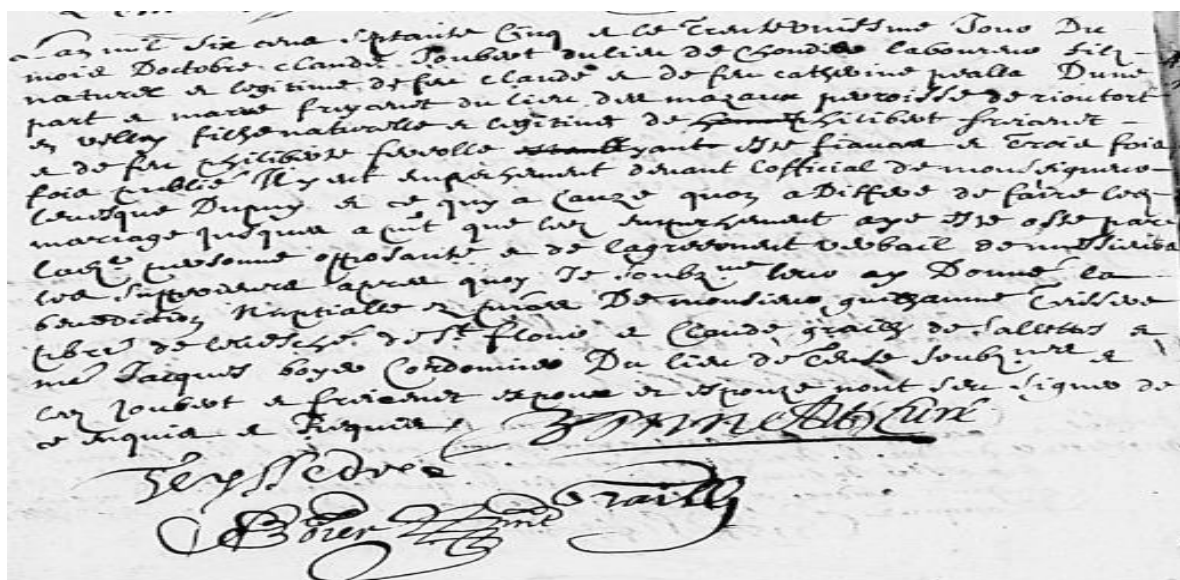 Lan mil six cens septante cinq et le trente uniesme Jour Du
mois Doctobre claude Joubert du lieu de laboureur filz
naturel et legitime de feu claude et de feu catherine pralla Dune
part et marie freycenet du lieu des mazaux parroisse de rioutort
en vellay filhe naturelle et legitime de philibert freicenet
et de feu philiberte ferolle ayant este fiances et Trois fois
fois publiés Ny ent empechement devant Lofficial de monseigneur
levesque Dupuy et ce quy a cauze quon a Differe de faire leur
mariage jusques a que leur empechement aye este oste par
personne opposante et de lagreement verbail de messieurs
les superieurs apres quoy Je soubzne leur ay Donne la
benediction Nuptialle en De monsieur guilhaume
de levesché de St flour et Claude grailh de Salettes et
me Jacques boyer Cordonnier Du lieu de soubznes et
les Joubert et freicenet espoux et espouze nont seu signer de
ce enquis et Requis
Curé
Teyssedre
Boyer Grailh